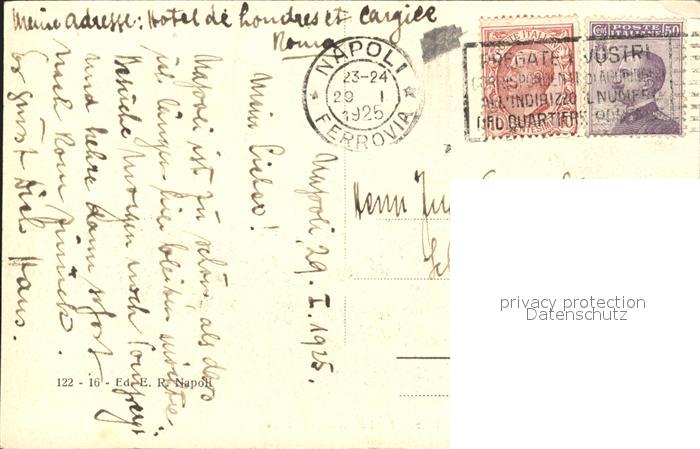 Meine Adresse: Hotel de Londres et Cargill
Roma
Napoli, 29. I. 1925.
Mein Lieber!
Napoli ist zu schön, als dass
ich länger hier bleiben möchte.
Besuche morgen noch Pompeji
und kehre dann sofort
nach Rom zurück.
Es grüsst Dich Hans.
Herrn
NAPOLI
23-24
29 I
1925
FERROVIA
PREGATE I VOSTRI
CORRISPONDENTI DI AGGIUNGERE
ALL'INDIRIZZO IL NUMERO
DEL QUARTIERE POSTALE
POSTE ITALIANE
POSTE ITALIANE
50
122 - 16 - Ed. E. R. Napoli
privacy protection
Datenschutz